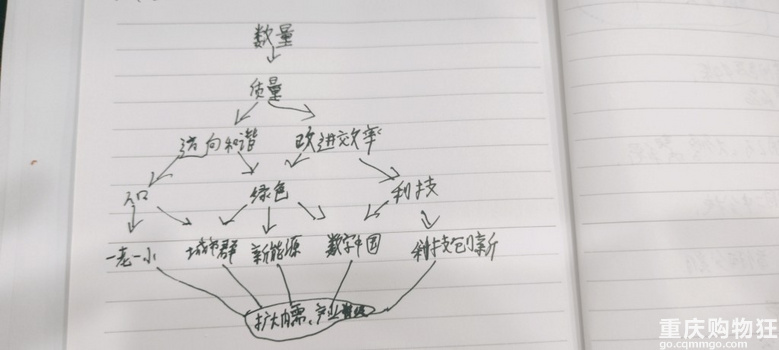 数量
质量
和谐 改进效率
人口 绿色 科技
一老一小 城市群 新能源 数字中国 科技创新
扩大内需、产业
重庆购物狂
go.cqmmgo.com